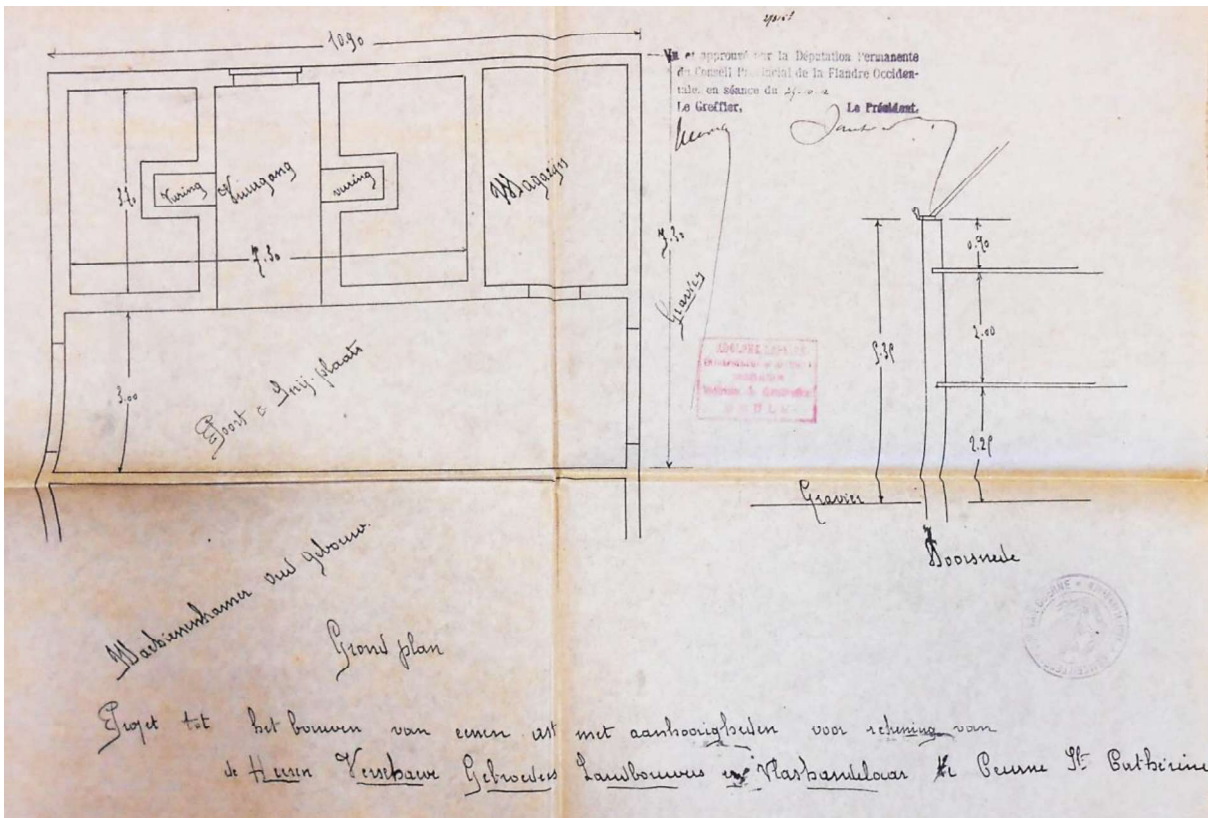 10.90
Vu et approuvé par la Députation Permanente
du Conseil Provincial de la Flandre Occiden-
tale, en séance du
Le Greffier, Le Président.
Vuring Vuurgang vuring
Magazijn
7.30
7.30
Gravier
3.00
0.90
2.00
2.25
5.35
Gravier
Doorsnede
Machienenkamer oud gebouw.
Grond plan
Projet tot het bouwen van eenen ast met aanhoorigheden voor rekening van
de Heeren Verschaeve Gebroeders Landbouwers en Vlashandelaar te Peurne St. Cathérine